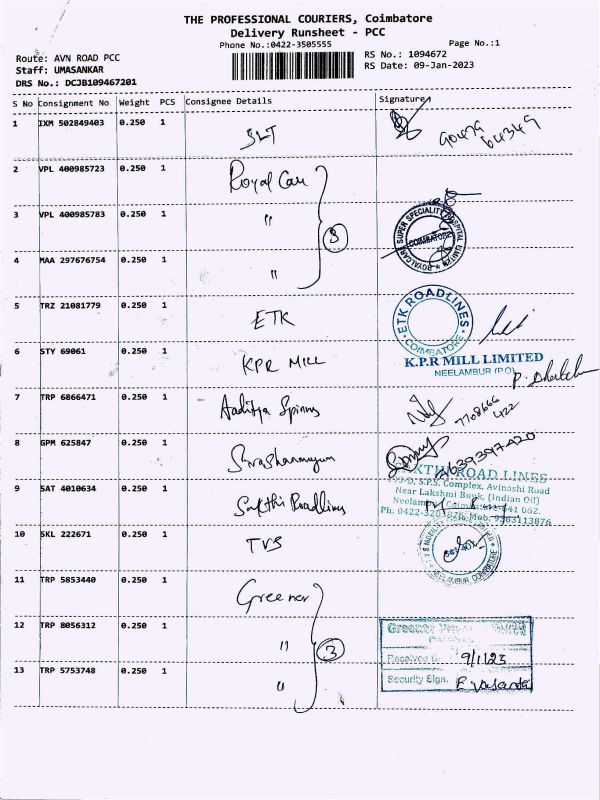 THE PROFESSIONAL COURIERS, Coimbatore
Delivery Runsheet - PCC
Phone No.:0422-3505555
Page No.:1
Route: AVN ROAD PCC
RS No.: 1094672
Staff: UMASANKAR
RS Date: 09-Jan-2023
DRS No.: DCJB109467201
S No Consignment No Weight PCS Consignee Details Signature
1 IXM 502849403 0.250 1 SLT
2 VPL 400985723 0.250 1 Royal Care
3 VPL 400985783 0.250 1 "
3
SUPER SPECIALITY HOSPITAL COIMBATORE
4 MAA 297676754 0.250 1 "
5 TRZ 21081779 0.250 1 ETK
ETK ROADLINES COIMBATORE
6 STY 69061 0.250 1 KPR MILL
K.P.R MILL LIMITED
NEELAMBUR (PO)
7 TRP 6866471 0.250 1 Aaditya Spinners
7708666
422
8 GPM 625847 0.250 1
9 SAT 4010634 0.250 1 Sakthi Roadlines
SAKTHI ROAD LINES
S.P.S. Complex, Avinashi Road
Near Lakshmi Bank, (Indian Oil)
Neelambur, Coimbatore-641 062.
Ph: 0422- Mob: 9363113876
10 SKL 222671 0.250 1 TVS
NEELAMBUR, COIMBATORE
11 TRP 5853440 0.250 1 Greener
12 TRP 8056312 0.250 1 "
3
Greener
Received 9/1/23
13 TRP 5753748 0.250 1 "
Security Sign. P. Vasantha